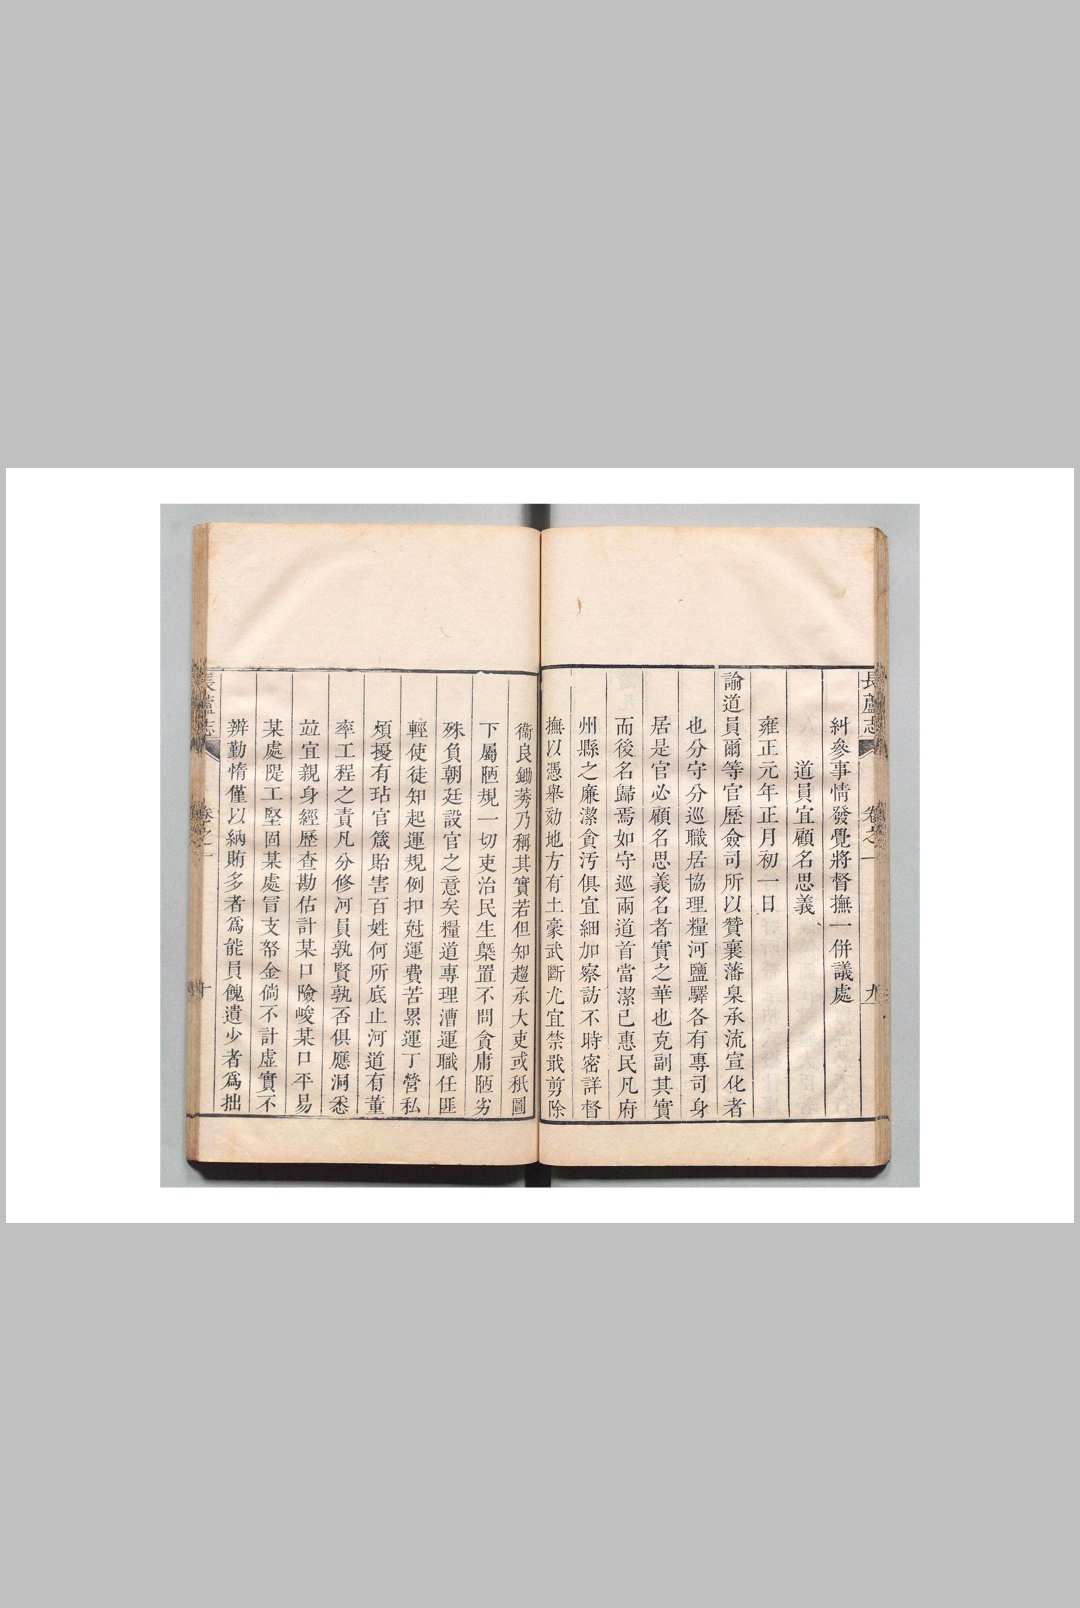 長蘆志 卷之一 九
糾參事情發覺將督撫一併議處
道員宜顧名思義
雍正元年正月初一日
諭道員爾等官歷僉司所以贊襄藩臬承流宣化者
也分守分巡職居協理糧河鹽驛各有專司身
居是官必顧名思義名者實之華也克副其實
而後名歸焉如守巡兩道首當潔己惠民凡府
州縣之廉潔貪汚俱宜細加察訪不時密詳督
撫以憑舉劾地方有土豪武斷尤宜禁戢剪除
衛良鋤莠乃稱其實若但知趨承大吏或秖圖
下屬陋規一切吏治民生槩置不問貪庸陋劣
殊負朝廷設官之意矣糧道專理漕運職任匪
輕使徒知起運規例扣尅運費苦累運丁營私
煩擾有玷官箴貽害百姓何所底止河道有董
率工程之責凡分修河員孰賢孰否俱應洞悉
竝宜親身經歷查勘估計某口險峻某口平易
某處隄工堅固某處冒支帑金倘不計虛實不
辨勤惰僅以納賄多者爲能員餽遺少者爲拙
長蘆志 卷之一 十